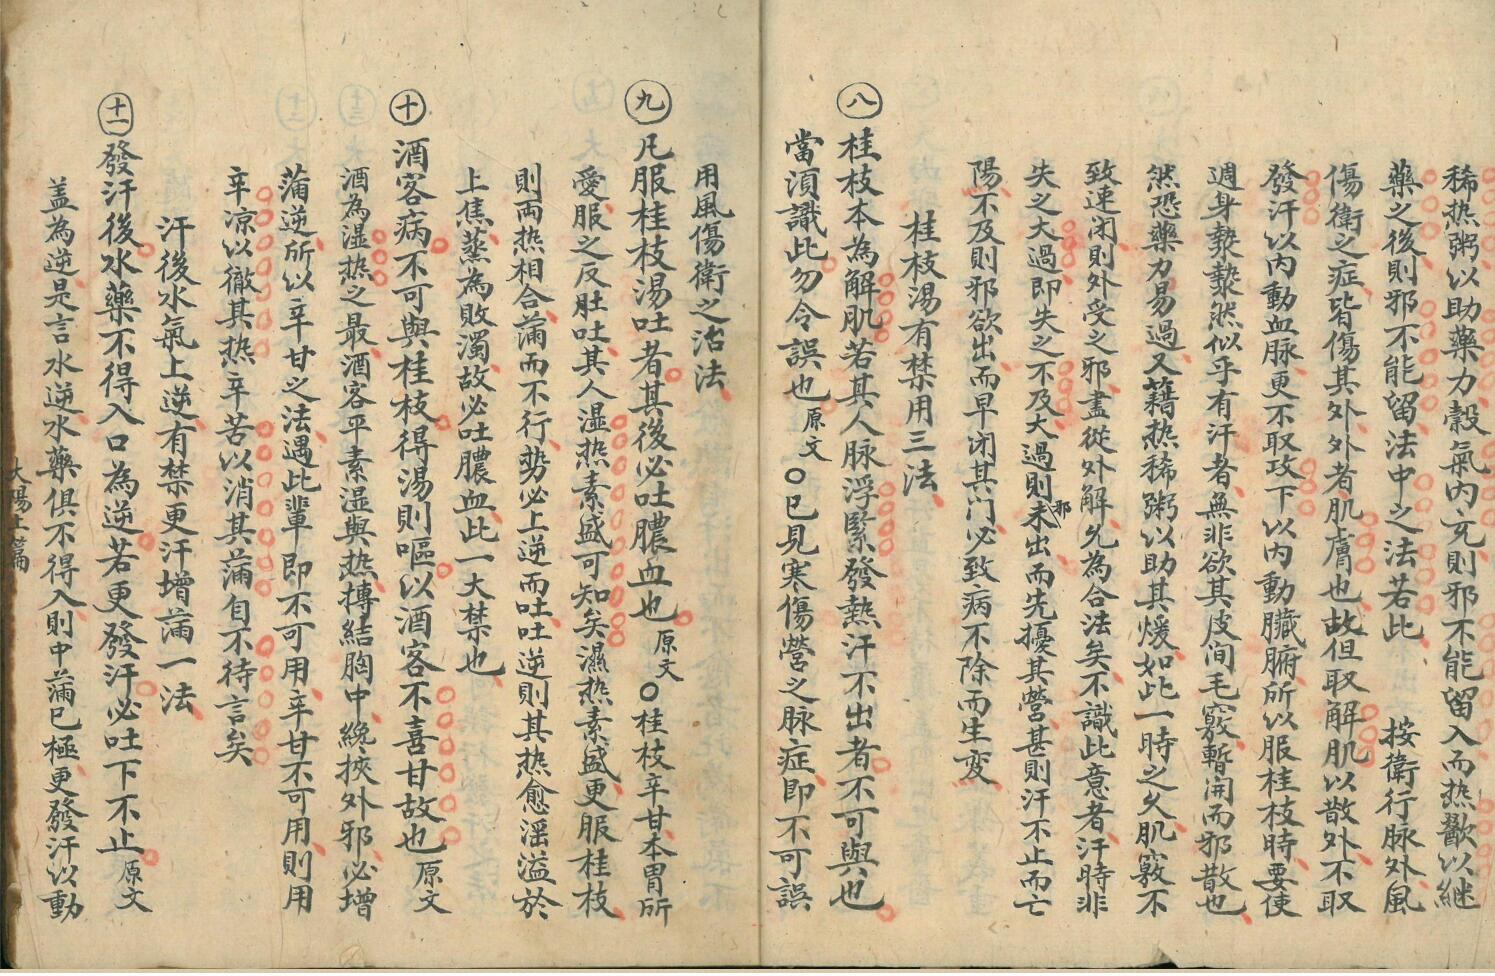 稀热粥以助藥力穀氣内充則邪不能留入而热歠以継
藥之後則邪不能留法中之法若此　按衛行脉外風
傷衛之症皆傷其外外者肌膚也故但取解肌以散外不取
發汗以内動血脉更不取攻下以内動臟腑所以服桂枝時要使
週身漐漐然似乎有汗者無非欲其皮间毛竅暫開而邪散也
然恐藥力易過又藉热稀粥以助其煖如此一時之久肌竅不
致速闭則外受之邪盡從外解允為合法矣不識此意者汗時非
失之大過即失之不及大過則邪未出而先擾其營甚則汗不止而亡
陽不及則邪欲出而早闭其门必致病不除而生変
桂枝湯有禁用三法
㊇桂枝本為解肌若其人脉浮緊發熱汗不出者不可與也
當須識此勿令誤也原文○已見寒傷營之脉症即不可誤
用風傷衛之治法
㊈凡服桂枝湯吐者其後必吐膿血也原文○桂枝辛甘本胃所
愛服之反吐其人湿热素盛可知矣濕热素盛更服桂枝
則両热相合蒲而不行势必上逆而吐吐逆則其热愈滛溢於
上焦蒸為敗濁故必吐膿血此一大禁也
㊉酒客病不可與桂枝得湯則嘔以酒客不喜甘故也原文
酒為湿热之最酒客平素湿與热摶結胸中纔挾外邪必增
蒲逆所以辛甘之法遇此輩即不可用辛甘不可用則用
辛凉以徹其热辛苦以消其蒲自不待言矣
汗後水氣上逆有禁更汗增蒲一法
⑪發汗後水藥不得入口為逆若更發汗必吐下不止原文
盖為逆是言水逆水藥俱不得入則中蒲已極更發汗以動
太陽上篇